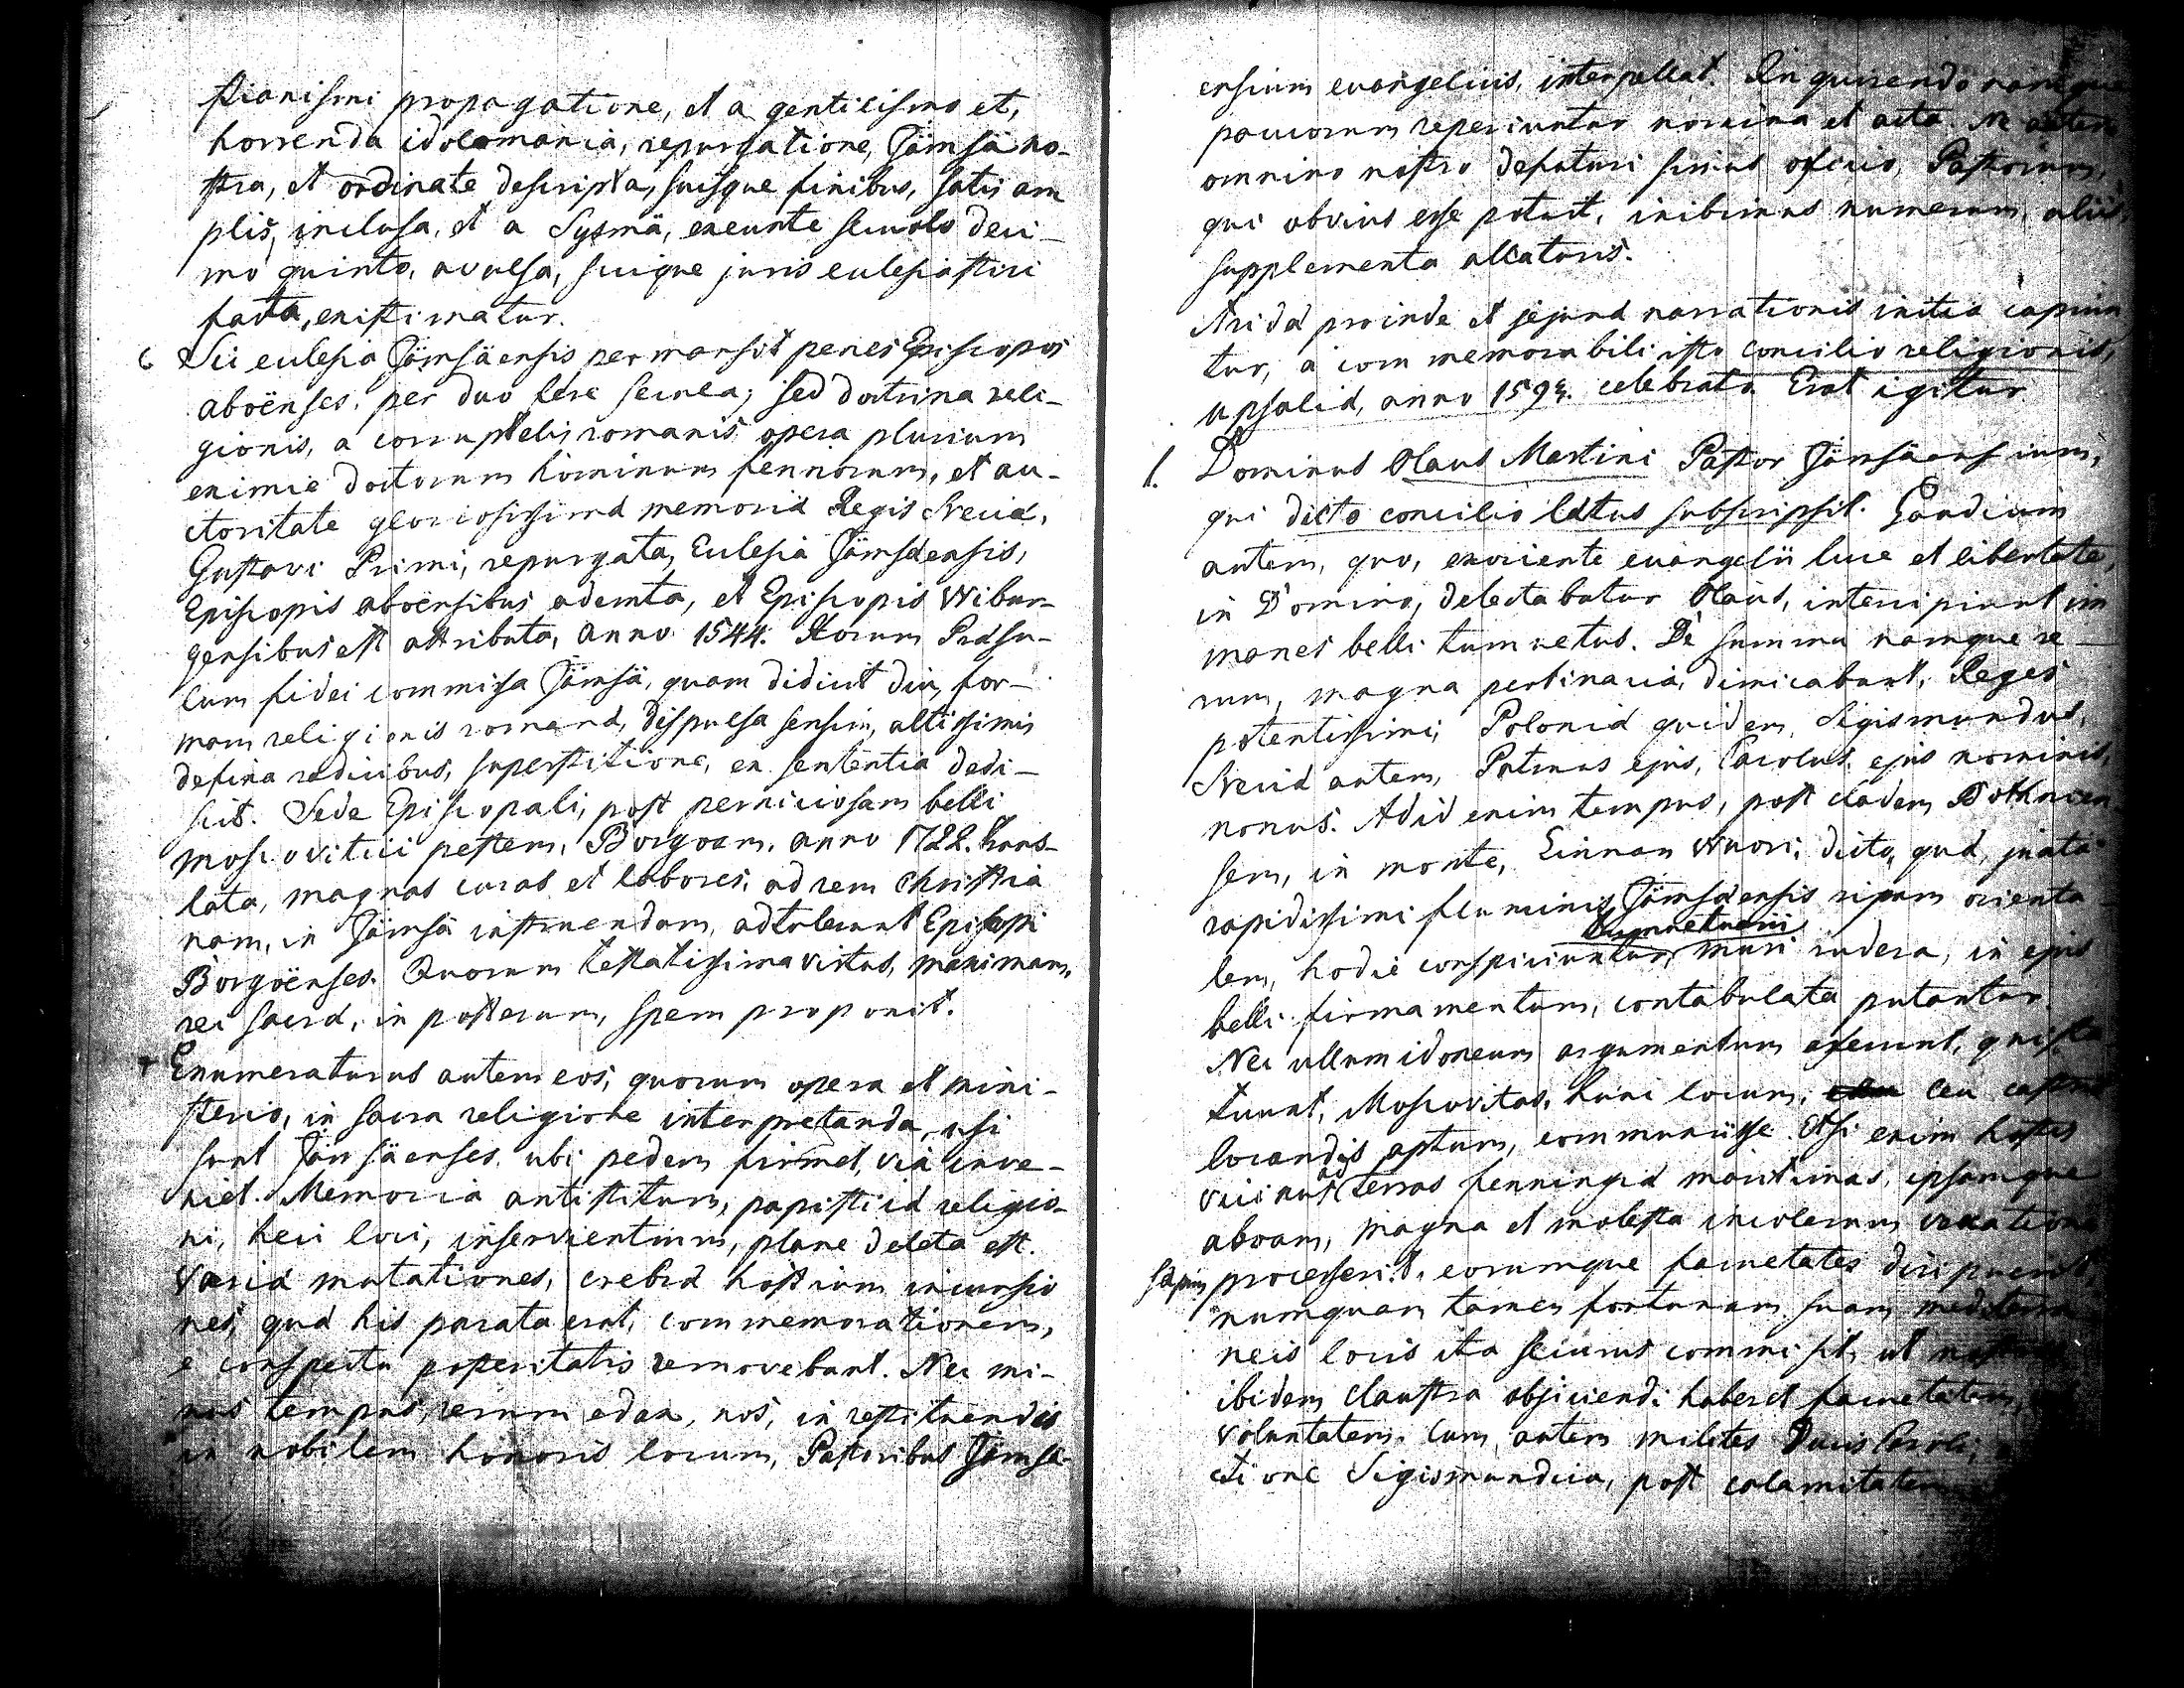 stianismi propagatione, et a gentilismo et,
horrenda idolomania, repurgatione, Jämsä no-
stra, et ordinate descripta, suisque finibus, satis am
plis, inclusa, et a Sysmä, exeunte seculo deci-
mo quinto, avulsa, suique juris eclesiastici
facta, existimatur.
6 Sic eclesia Jämsäensis permansit penes Episcopos
aboënses, per duo fere secula; sed doctrina reli-
gionis, a corruptelis romanis opera plurium
eximie doctorum hominum fennorum, et au-
ctoritate gloriosissimæ memoriæ Regis Sveciæ,
Gustavi Primi, repurgata, Eclesia Jämsäensis,
Episcopis aboënsibus ademta, et Episcopis Wibur-
gensibus est attributa, anno 1544. Horum Præsu-
lum fidei commissa Jämsä, quam didicit diu, for-
mam religionis romanæ, dispulsa sensim, altissimis
defixa radicibus, superstitione, ex sententia dedi-
scit. Sede Episcopali, post perniciosam belli
moscovitici pestem, Borgoam, anno 1722. trans-
lata, magnas curas et labores, ad rem christia
nam, in Jämsä instruendam, adtulerunt Episcopi
Borgoënses. Quorum testatissima virtus, maximam,
rei sacræ, in posterum, spem proponit.
7 Enumeraturus autem eos, quorum opera et mini-
sterio, in sacra religione interpretanda, usi
sunt Jämsäenses, ubi pedem firmet, vix inve-
niet. Memoria antistitum, papisticæ religio-
ni, heic loci, inservientium, plane deleta est.
Variæ mutationes, crebræ hostium incursio
nes, quæ his parata erat, commemorationem,
e conspectu posteritatis removebant. Nec mi-
nus tempus, rerum edax, nos, in restituendis
in nobilem honoris locum, Pastoribus Jämsä-
ensium evangelicis, interpellat. In quirendo namque
paucorum reperiuntur nomina et acta. Ne autem
omnino nostro defuturi simus oficio, Pastorum,
qui obvius esse potuit, inibimus numerum, aliis,
supplementa allaturis.
Arida proinde et jejuna narrationis initia capiun
tur, a com memorabili isto concilio religionis,
upsaliæ, anno 1593. celebrato. Erat igitur
1. Dominus Olaus Martini Pastor Jämsäensium,
qui dicto concilio lætus subscripsit. Gaudium
autem, quo, exoriente evangelii luce et libertate,
in Domino, delectabatur Olaus, intercipiunt im
manes belli tumultus. De summa namque re
rum, magna pertinacia, dimicabant, Reges
potentissimi, Poloniæ quidem, Sigismundus,
Sveciæ autem, Patruus ejus, Carolus, ejus nominis,
nonus. Ad id enim tempus, post cladem Bothnien
sem, in monte, Linnan Wuori, dicto, quæ, juxta
rapidissimi fluminis Jämsäensis ripam orienta
lem, hodie conspiciuntur, muri rudera, in ejus
belli firmamentum, contabulata putantur.
Nec ullum idoneum argumentum aferunt, qui sta
tuunt, Moscovitas, hunc locum, ceu castris
locandis aptum, communiisse. Etsi enim hostis
vicinus ad terras fenningiæ maritimas, ipsamque
aboam, magna et molesta incolarum vexatione
sæpius processerit, eorumque facultates diripuerit,
numquam tamen fortunam suam mediterra
neis locis ita securus commisit, ut
ibidem claustra objiciendi haberet facultatem,
voluntatem. Cum autem milites Ducis Caroli,
ctione Sigismundica, post calamitatem